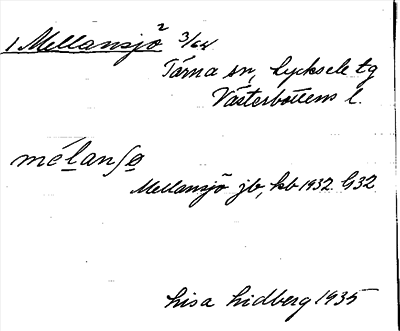 1 Mellansjö² 3/64
Tärna sn, Lycksele tg
Västerbottens l.
mélanʃo
Mellansjö jb, kb 1932 G32
Lisa Lidberg 1935